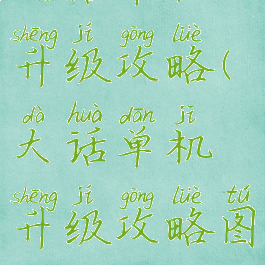 shēng jí gōng lüè
升级攻略(
dà huà dān jī
大话单机
shēng jí gōng lüè tú
升级攻略图